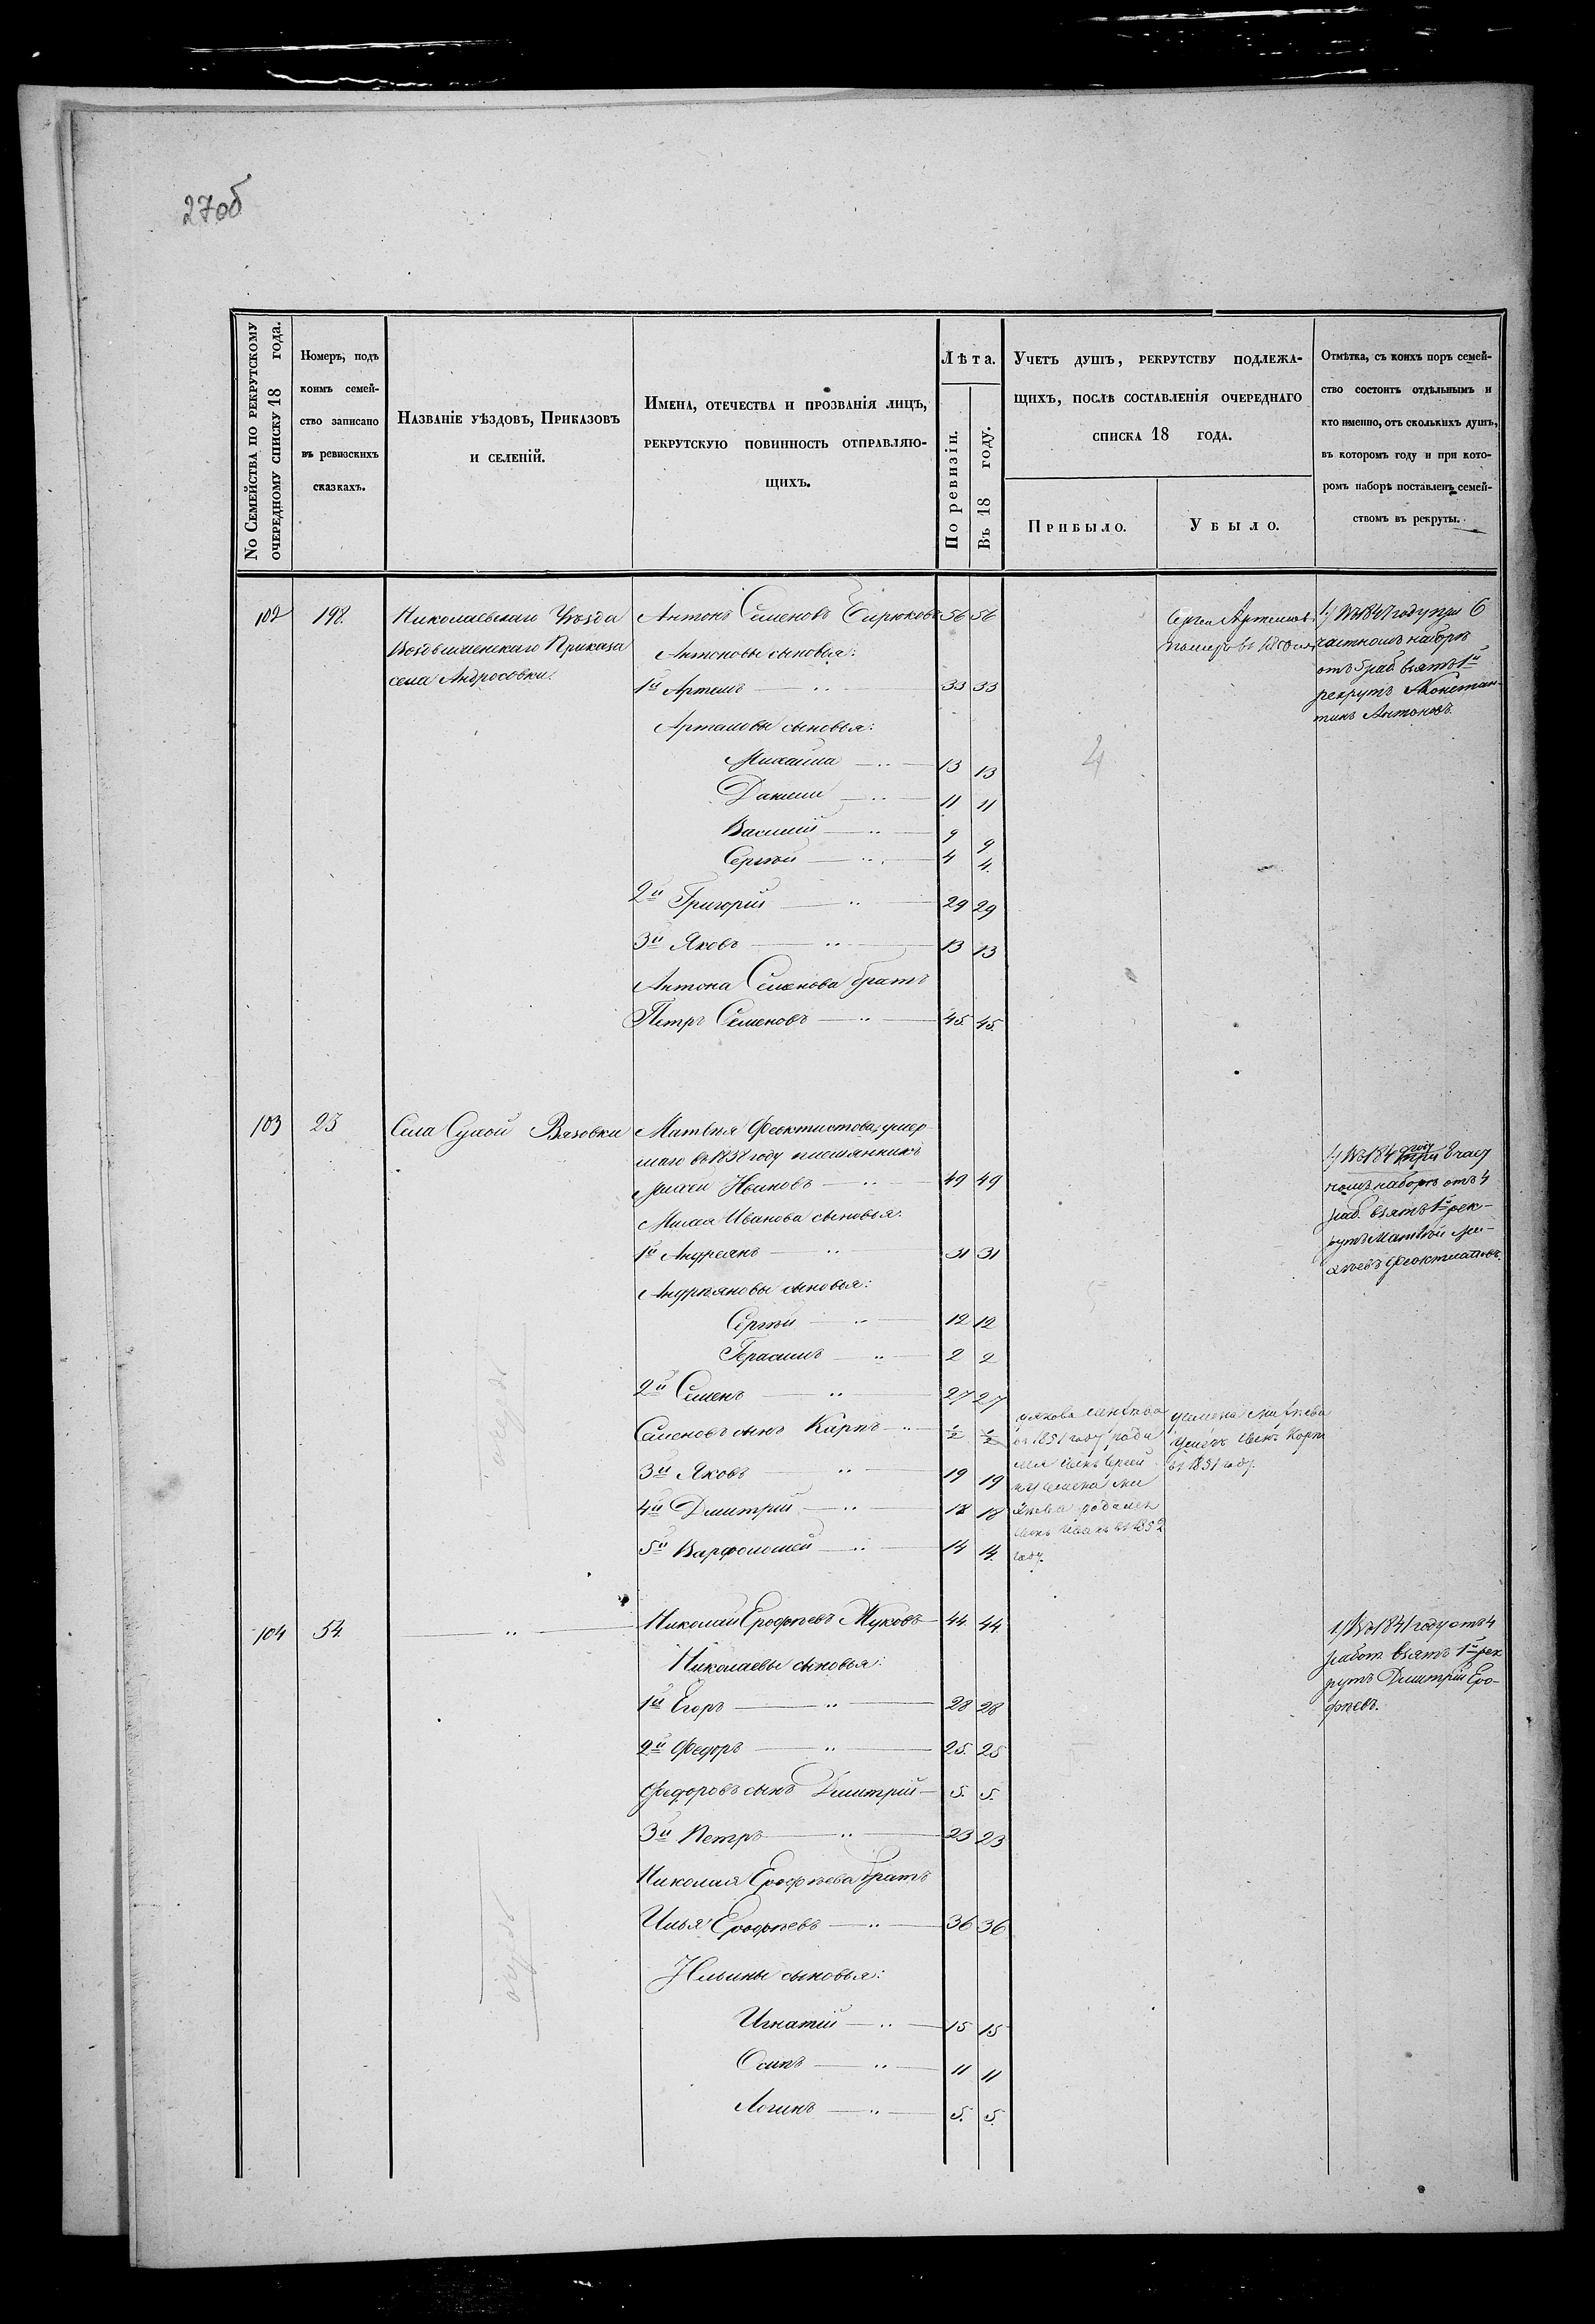 27об
No Семейства по рекрутскому
очередному списку 18 года.
Номеръ, подъ
коимъ семей-
ство записано
въ ревизскихъ
сказкахъ.
Названіе уѣздовъ, Приказовъ
и селеній.
Имена, отечества и прозванія лицъ,
рекрутскую повинность отправляю-
щихъ.
Лѣта.
По ревизіи.
Въ 18 году.
Учетъ душъ, рекрутству подлежа-
щихъ, послѣ составленія очереднаго
списка 18 года.
Прибыло.
Убыло.
Отмѣтка, съ коихъ поръ семей-
ство состоитъ отдѣльнымъ и
кто именно, отъ сколькихъ душъ,
въ которомъ году и при кото-
ромъ наборѣ поставленъ семей-
ствомъ въ рекруты.
102 198. Николаевскаго Уѣзда Антонъ Семеновъ Бирюковъ 56 56
Воздвиженскаго Приказа Антоновы сыновья:
села Андросовки. 1й Артемъ 33 33
Артамовы сыновья:
Михаила 13 13
Данила 11 11
Василій 9 9
Сергѣй 4 4.
2й Григорій 29 29
3й Яковъ 13 13
Антона Семенова братъ
Петръ Семеновъ 45. 45.
4
Сергей Артемовъ
померъ въ 1850
1/ Въ 1847 году при 6
частномъ наборѣ
отъ 5 раб. взятъ 1й
рекрутъ Констан-
тинъ Антоновъ.
103 25 Села Сухой Вязовки Матвѣя Феоктистова, умер-
шаго въ 1838 году племянникъ
Михей Ивановъ 49 49
Михея Иванова сыновья:
1й Андреянъ 31 31
Андрѣяновы сыновья:
Сергѣй 12 12
Герасимъ 2 2
2й Семенъ 27 27
Семеновъ сынъ Карпъ ½ ½
3й Яковъ 19 19
4й Дмитрій 18 18
5й Варфоломей 14 14.
у Якова
въ 1851 году роди
лся сынъ Сергей
и у Семена Ми
хѣева родился
сынъ Иванъ въ 1852
году.
у Семена Михѣева
умеръ сынъ Карпъ
въ 1851 году.
1/ Въ 1849 году при 8 част
номъ наборѣ отъ 4
раб. взятъ 1й рек-
рутъ Матвѣй Ми-
хѣевъ Феоктистовъ.
104 54. Николай Ерофѣевъ Жуковъ 44. 44
Николаевы сыновья:
1й Егоръ 28 28
2й Федоръ 25. 25
Федоровъ сынъ Дмитрій 5. 5.
3й Петръ 23 23
Николая Ерофѣева братъ
Илья Ерофѣевъ 36 36
Ильины сыновья:
Игнатій 15 15
Осипъ 11 11
Логинъ 5. 5.
1/ Въ 1841 году отъ 4
работ. взятъ 1й рек
рутъ Дмитрій Еро-
фѣевъ.